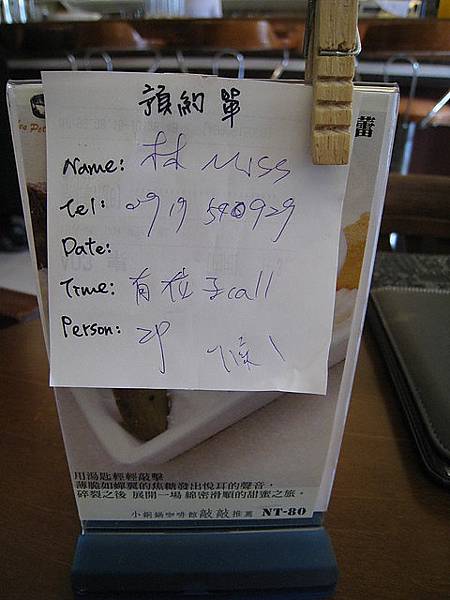 蕾
預約單
Name: 林 Miss
Tel: 0919 540929
Date:
Time: 有位子call
Person: 2P
用湯匙輕輕敲擊
薄脆如蟬翼的焦糖發出悅耳的聲音，
碎裂之後 展開一場 綿密滑順的甜蜜之旅。
小銅鍋咖啡館敲敲推薦 NT-80